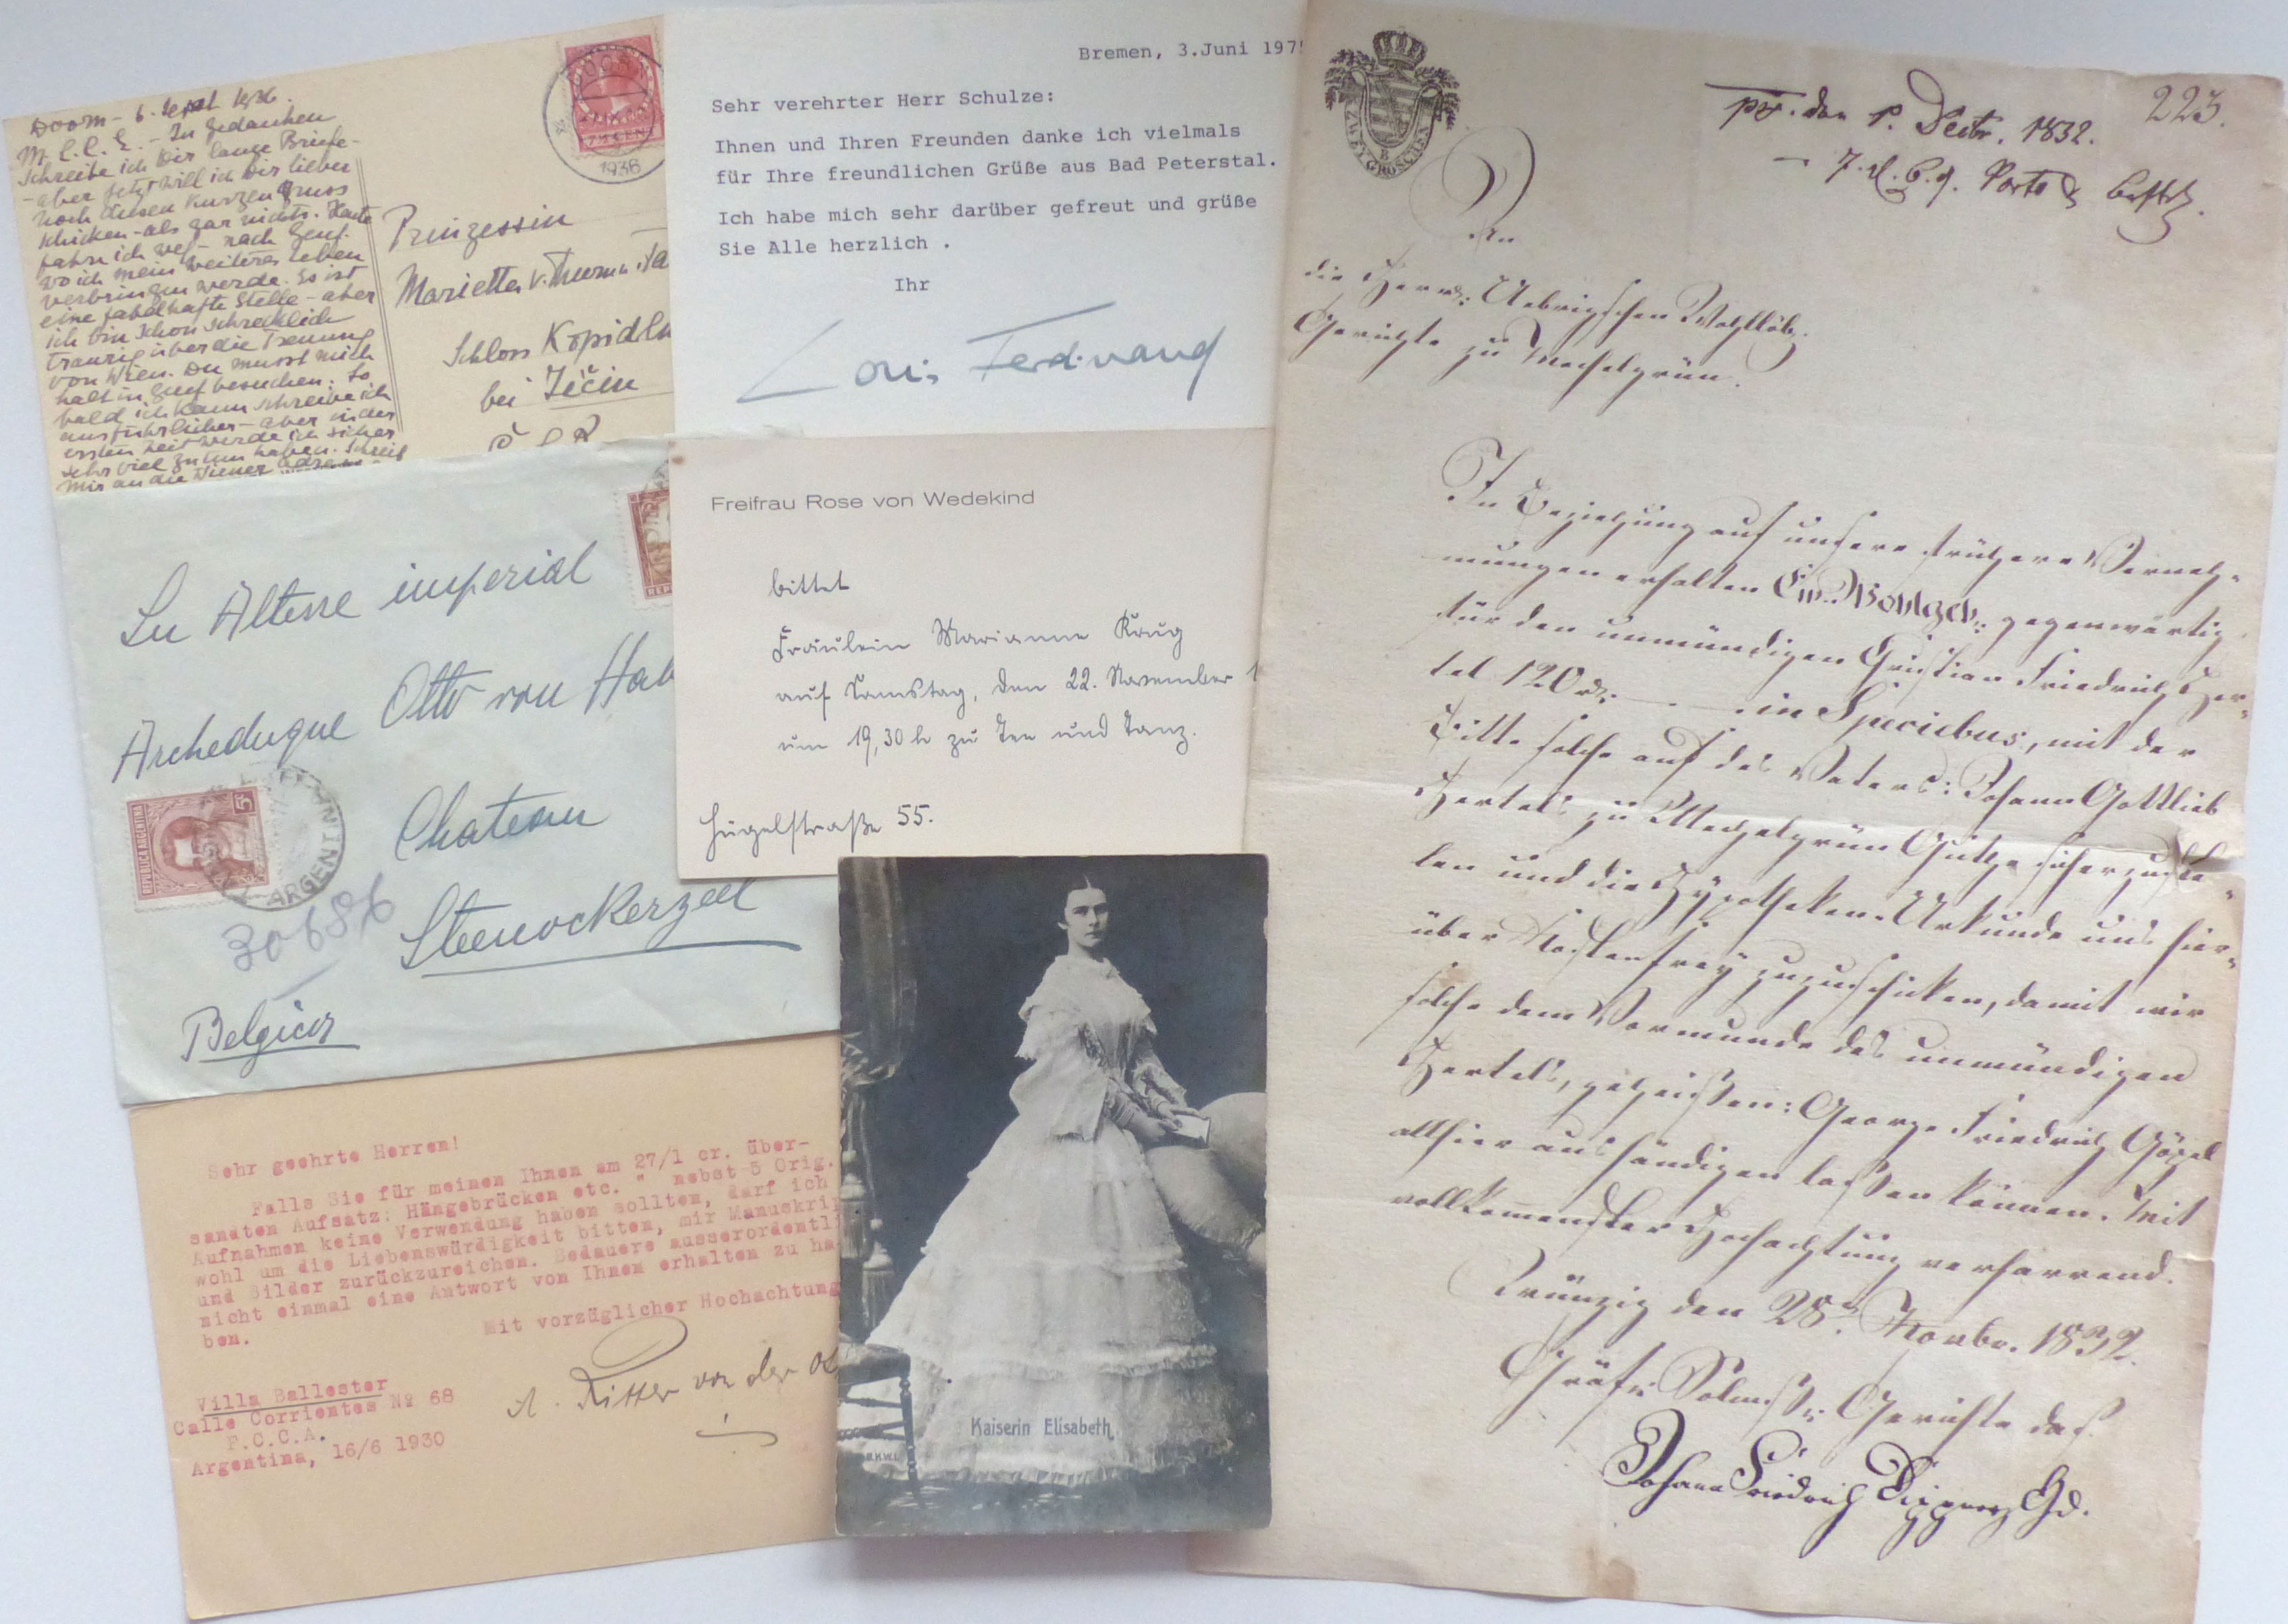 Doorn - 6. Sept 1936.
M. L. L. L. - In Gedanken
schreibe ich Dir lange Briefe -
- aber jetzt will ich Dir lieber
noch diesen kurzen Gruss
schicken - als gar nichts. Heute
fahre ich weg - nach Genf.
wo ich mein weiteres Leben
verbringen werde. Es ist
eine fabelhafte Stelle - aber
ich bin schon schrecklich
traurig über die Trennung
von Wien. Du musst mich
halt in Genf besuchen. So
bald ich kann schreibe ich
ausführlicher - aber in der
ersten Zeit werde ich sicher
sehr viel zu tun haben. Schreib
mir an die Wiener Adresse
1936
Prinzessin
Marietta v. Thurn
Schloss Kopidln
bei Jičin
Č S R
Bremen, 3.Juni 197
Sehr verehrter Herr Schulze:
Ihnen und Ihren Freunden danke ich vielmals
für Ihre freundlichen Grüße aus Bad Peterstal.
Ich habe mich sehr darüber gefreut und grüße
Sie Alle herzlich .
Ihr
Louis Ferdinand
Freifrau Rose von Wedekind
bittet
Fräulein Marianne Krug
auf Samstag, den 22. November 1
um 19,30 h zu Tee und Tanz.
Hügelstraße 55.
Altesse imperial
Archeduque Otto von Hab
Chateau
Steenockerzeel
Belgica
REPUBLICA ARGENTINA
5c
ARGENTINA
30686
Sehr geehrte Herren!
Falls Sie für meinen Ihnen am 27/1 cr. über-
sandten Aufsatz: Hängebrücken etc. " nebst 5 Orig.
Aufnahmen keine Verwendung haben sollten, darf ich
wohl um die Liebenswürdigkeit bitten, mir Manuskri
und Bilder zurückzureichen. Bedauere ausserordentli
nicht einmal eine Antwort von Ihnen erhalten zu ha
ben.
Mit vorzüglicher Hochachtung
A. Ritter von der
Villa Ballester
Calle Corrientes Nº 68
F.C.C.A.
Argentina, 16/6 1930
Kaiserin Elisabeth
B.K.W.I.
ZWEY GROSCHEN
223.
pr. den 1. Decbr. 1832.
An
die Herrl: Uebrigschen Wohllöb.
Gerichte zu Mechelgrün.
In Beziehung auf unsere frühere Verneh-
mungen erhalten Ew. Wohlgeb: gegenwärtig
für den unmündigen Christian Friedrich Her-
tel 120 in Speciebus, mit der
Bitte solche auf des Vaters: Johann Gottlieb
Hertels zu Mechelgrün Guthe sicherzustel-
len und die Hypotheken-Urkunde uns hier-
über kostenfrey zuzuschicken, damit wir
solche dem Vormunde des unmündigen
Hertels, geheißen: George Friedrich Göpel
allhier aushändigen laßen können. Mit
vollkommenster Hochachtung verharrend.
den 28. Novbr. 1832.
Gräfl: Solms: Gerichte das.
Johann Friedrich